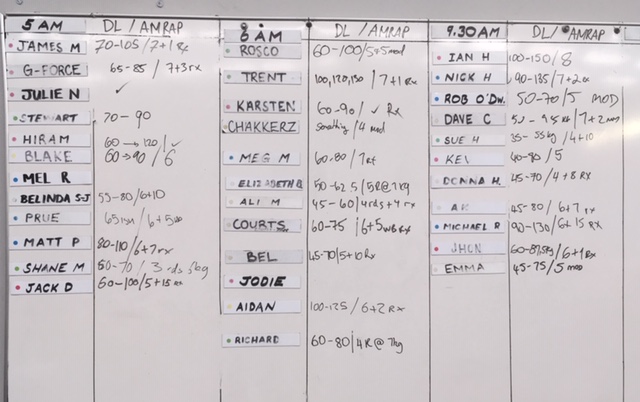 5 AM DL / AMRAP
JAMES M 70-105 / 7+1 Rx
G-FORCE 65-85 / 7+3 rx
JULIE N ✓
STEWART 70-90
HIRAM 60 → 120 / ✓
BLAKE 60 → 90 / 6
MEL R
BELINDA S-J 55-80 / 6+10
PRUE 6+5
MATT P 80-110 / 6+7 rx
SHANE M 50-70 / 3 rds
JACK D 60-100 / 5+15 rx
8 AM DL / AMRAP
ROSCO 60-100 / 5+5 mod
TRENT 100, 120, 130 / 7+1 Rx
KARSTEN 60-90 / ✓ Rx
CHAKKERZ something / 4 mod
MEG M 60-80 / 7 Rx
ELIZABETH B 50-62.5 / 5R@7kg
ALI M 45-60 / 4rds+4 rx
COURTS. 60-75 / 6+5
BEL 45-70 / 5+10 Rx
JODIE
AIDAN 100-125 / 6+2 Rx
RICHARD 60-80 / 4R@7kg
9.30AM DL / AMRAP
IAN H 100-150 / 8
NICK H 90-135 / 7+2 rx
ROB O'DW. 50-70 / 5 MOD
DAVE C 7+2
SUE H 35-55kg / 4+10
KEV 40-80 / 5
DONNA H. 45-70 / 4+8 Rx
45-80 / 6+7 rx
MICHAEL R 90-130 / 6+15 RX
JHON 60-87.5kg / 6+1 Rx
EMMA 45-75 / 5 mod